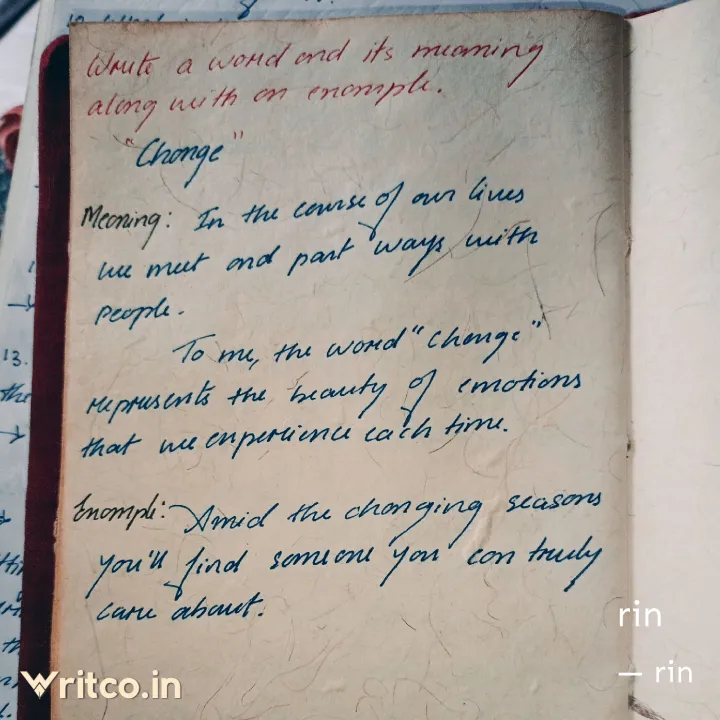 Write a word and its meaning
along with an example.
"Change"
Meaning: In the course of our lives
we meet and part ways with
people.
To me, the word "Change"
represents the beauty of emotions
that we experience each time.
Example: Amid the changing seasons
you'll find someone you can truly
care about.
13.
the
rin
— rin
Writco.in